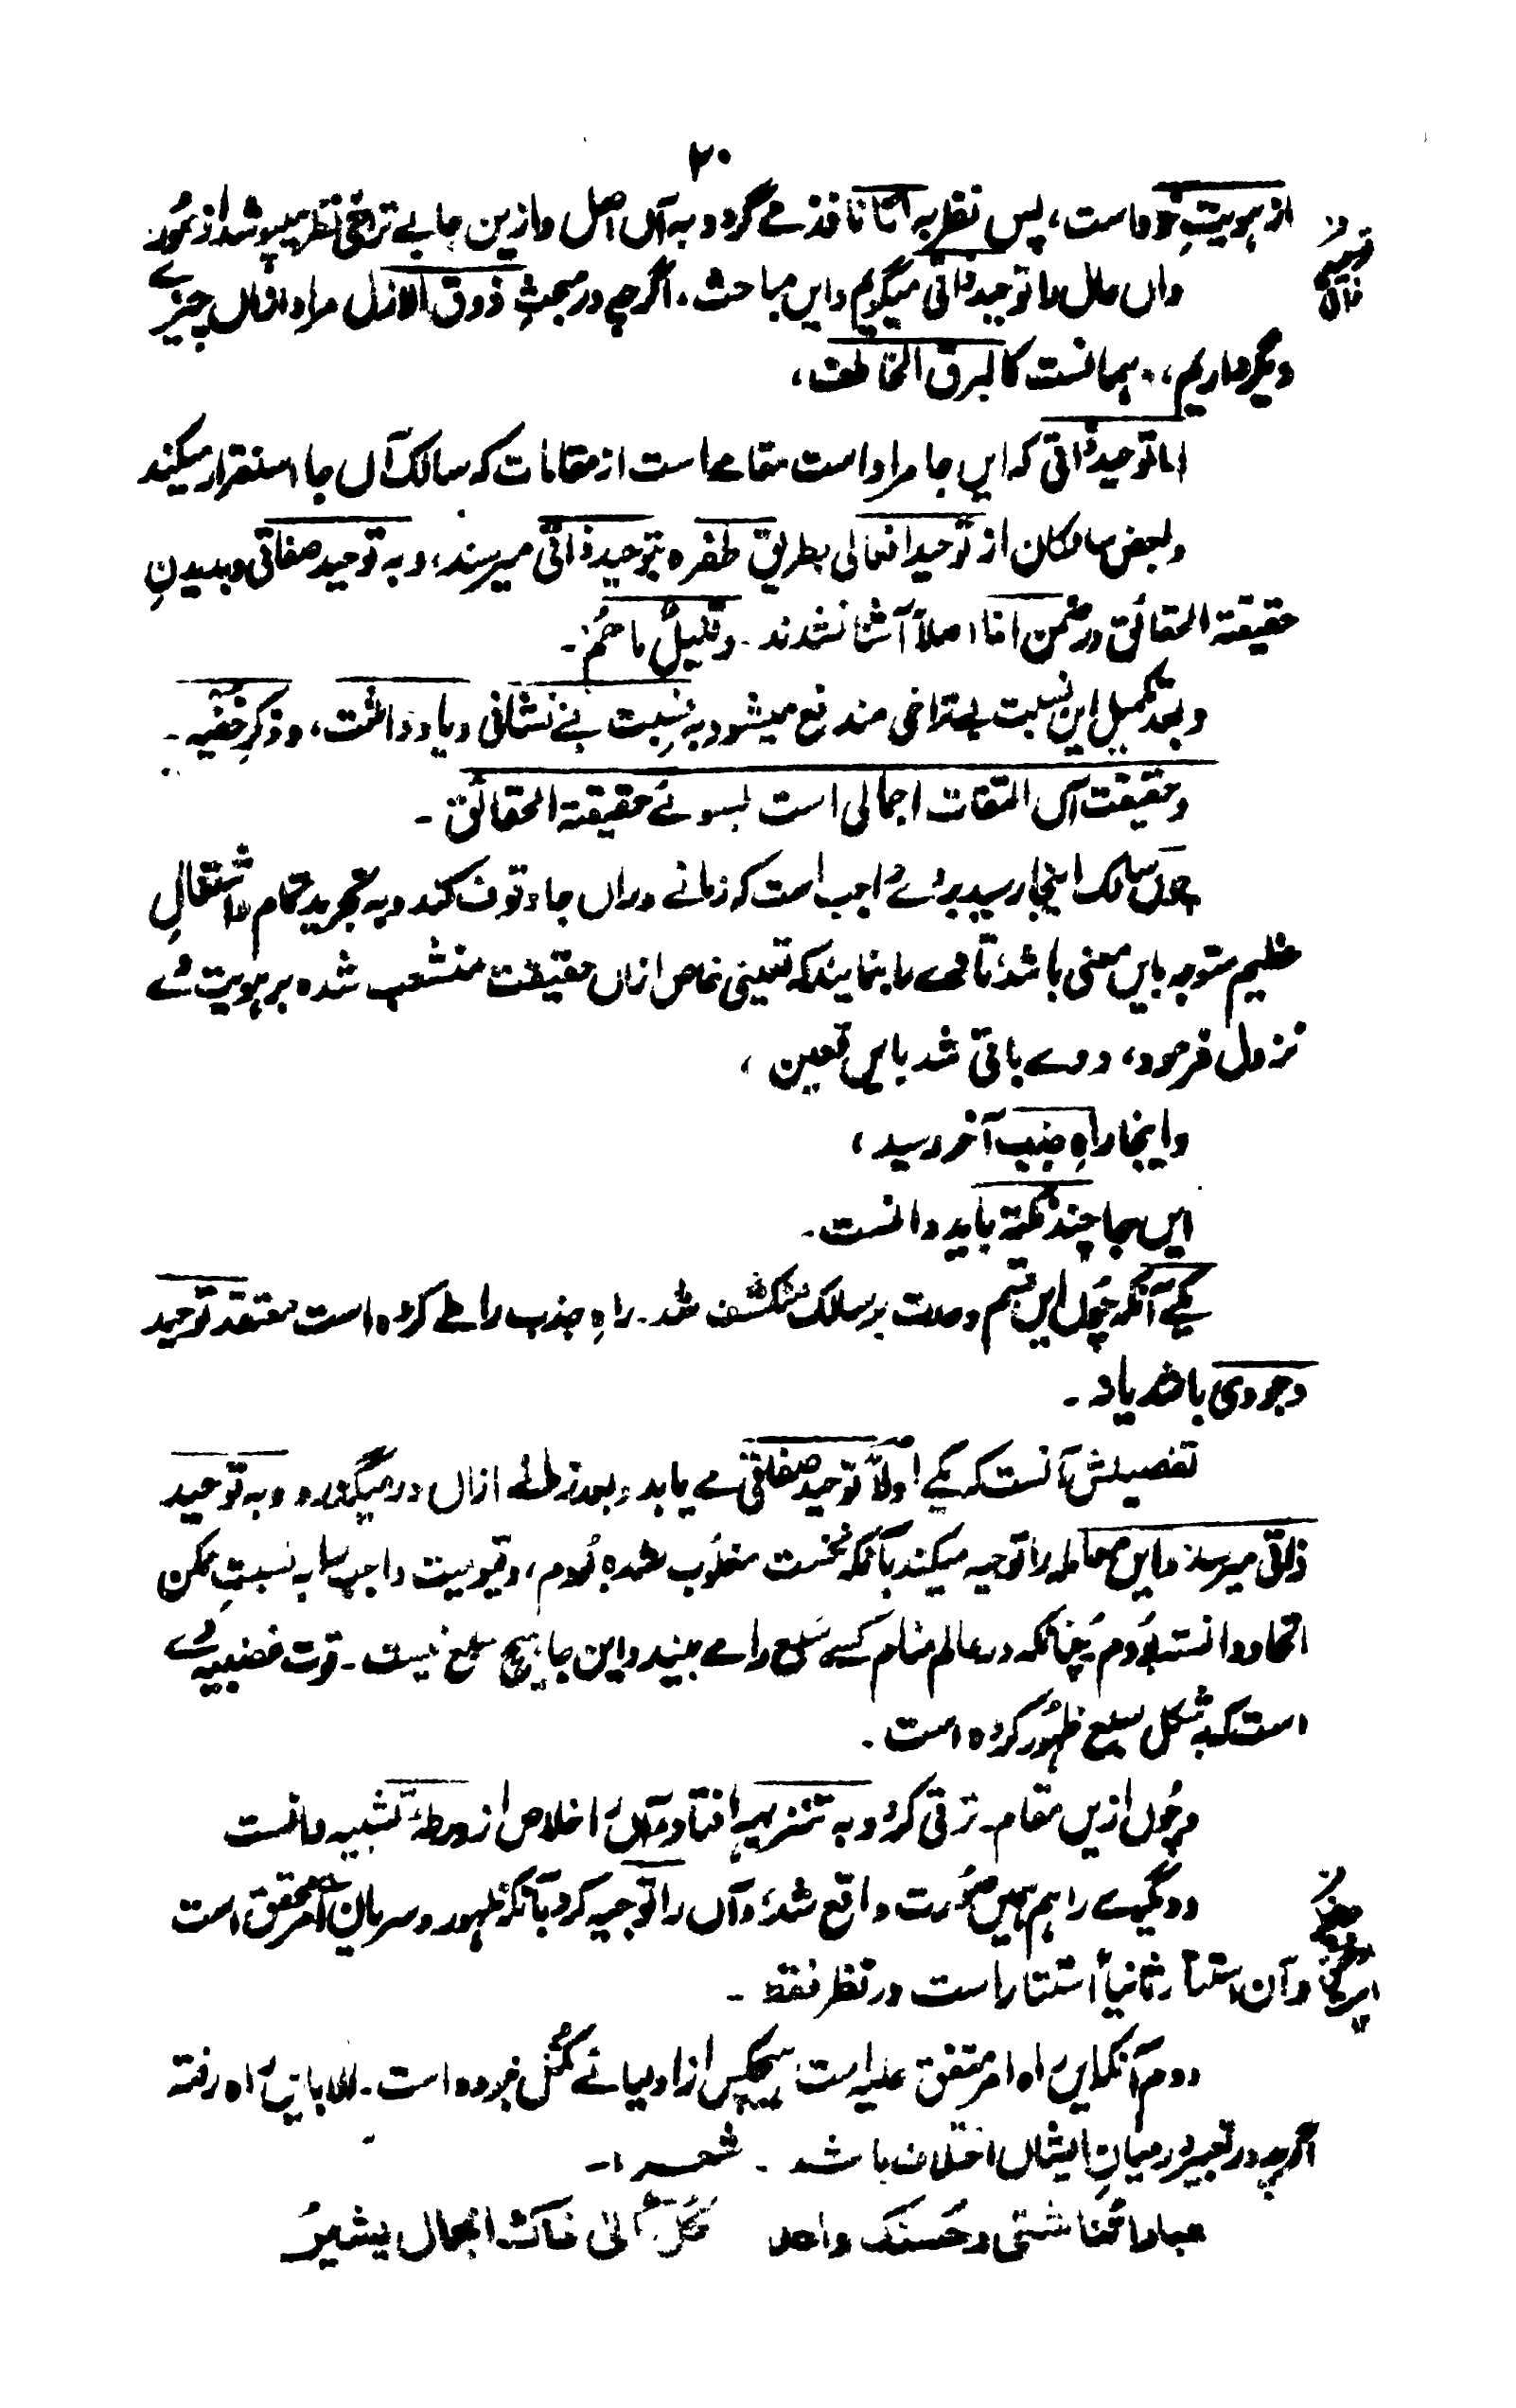 ۲۰
از ہویتِ خود است، پس نظر بہ انا نافذ مے گردد بہ آں اصل و ازین جا بے تراخی نظر میپوشد از
توحید ذاتی
واں حال را توحید ذاتی میگویم و ایں مباحث. اگرچہ در مبحثِ ذوق الازل مراد ازاں چیزے
دیگر داریم، ہمانست کالبرق الخاطف،
اما توحید ذاتی کہ ایں جا مراد است مقامے است از مقامات کہ سالک آں جا استقرار میکند
و بعض سالکان از توحید افعالی بطریق طفرہ بتوحید ذاتی میرسند، و بہ توحید صفاتی و بدیدنِ
حقیقۃ الحقائق در ضمن انا اصلاً آشنا نشدند۔ وقلیلٌ ما ھُم۔
و بعد تکمیل این نسبت بے تراخی مندفع میشود بہ نسبت بے نشانی و یادداشت، و ذکرِ خفیہ۔
و حقیقت آں التفات اجمالی است بسوئے حقیقۃ الحقائق۔
چوں سالک اینجا رسید بروے واجب است کہ زمانے دراں جا وقوف کند و بہ تجرید تمام و اشتغالِ
عظیم متوجہ بایں معنی باشد تا وے را بنمایند کہ تعینی خاص ازاں حقیقت منشعب شدہ بر ہویت وے
نزول فرمود، و وے باقی شد بایں تعین،
و اینجا راہِ جذب آخر رسید،
ایں جا چند نکتہ باید دانست۔
یکے آنکہ چوں ایں قسم وحدت بر سالک منکشف شد۔ راہِ جذب را طے کردہ است معتقد توحید
وجودی باشد یا نہ۔
تفصیلش آنست کہ یکے اولاً توحید صفاتی مے یابد و بعد زمانے ازاں در میگذرد و بہ توحید
ذاتی میرسد و ایں معاملہ را توجیہ میکند بآنکہ نخست مغلوب شدہ بودم، و قیومیت واجب را بہ نسبتِ ممکن
اتحاد دانستہ بودم چنانکہ در عالم منام کسے سَبع را مے بیند و این جا ہیچ سبع نیست۔ قوت غضبیہ وے
است کہ بشکل سبع ظہور کردہ است۔
و چوں ازیں مقام ترقی کرد و بہ تنزیہہ افتاد و آں را خلاص از ورطۂ تشبیہ دانست
و دیگرے را ہم ہمیں صورت واقع شد، و آں را توجیہ کرد بآنکہ ظہور و سریان امر محقق است
و آن استتار ثانیاً استتار است در نظر فقط۔
دوم آنکہ ایں راہ امر متفق علیہ است ہیچکس از اولیائے کُمَّل نبودہ است۔ الا بایں راہ رفتہ
اگرچہ در تعبیر درمیانِ ایشاں اختلاف باشد۔ شعر:-
عباراتنا شتی وحُسنک واحد کُلٌّ الی ذاک الجمال یشیرُ